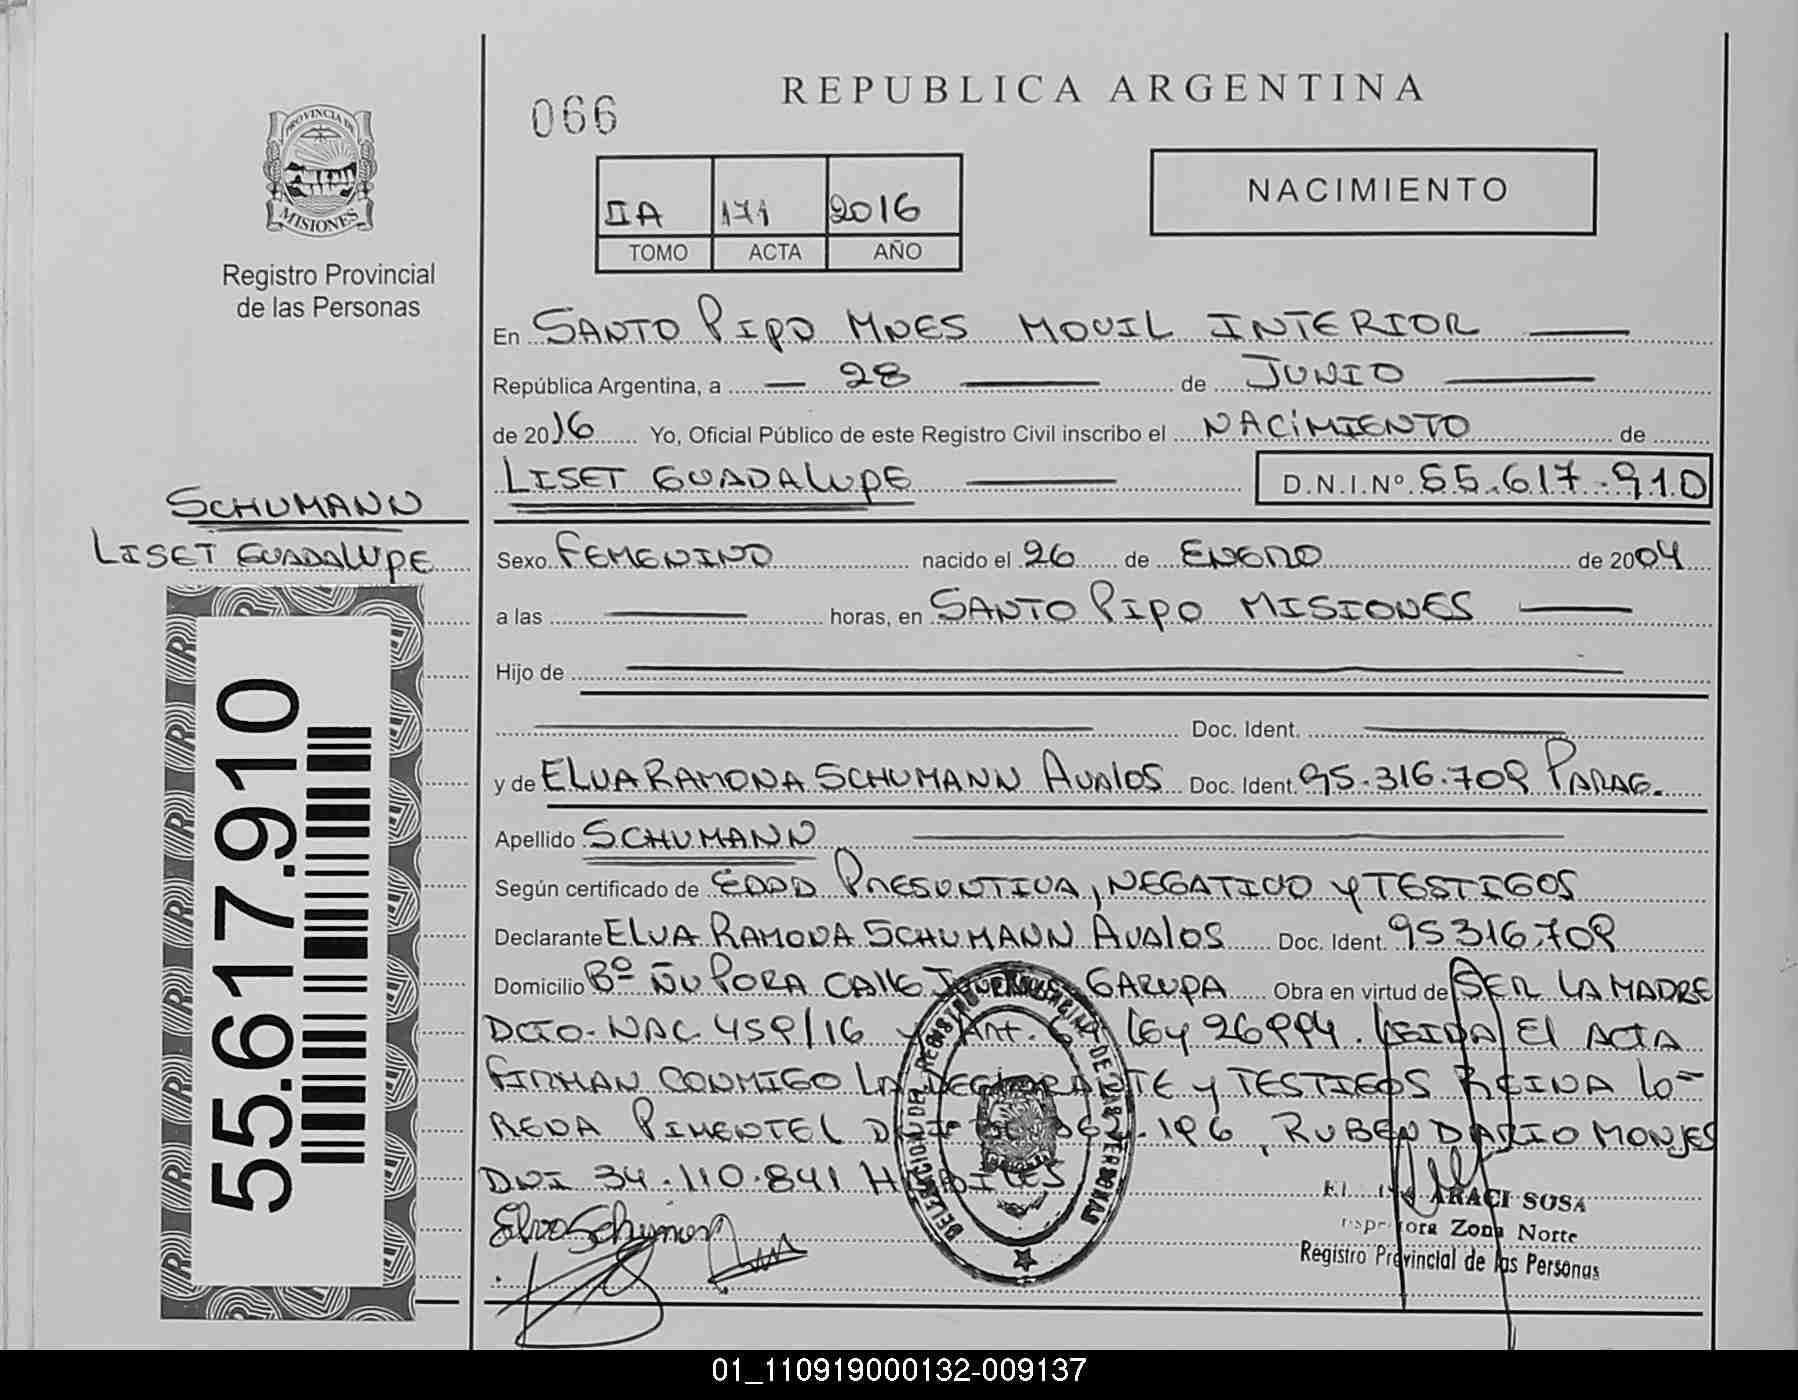 REPUBLICA ARGENTINA
066
PROVINCIA DE
MISIONES
Registro Provincial
de las Personas
IIA 171 2016
TOMO ACTA AÑO
NACIMIENTO
En SANTO PIPO MNES MOVIL INTERIOR
República Argentina, a 28 de JUNIO
de 2016 Yo, Oficial Público de este Registro Civil inscribo el NACIMIENTO de
LISET GUADALUPE D.N.I.Nº 55.617.910
SCHUMANN
LISET GUADALUPE
Sexo FEMENINO nacido el 26 de ENERO de 2004
a las horas, en SANTO PIPO MISIONES
Hijo de
Doc. Ident.
y de ELVA RAMONA SCHUMANN AVALOS Doc. Ident. 95.316.709 PARAG.
Apellido SCHUMANN
Según certificado de EDAD PRESUNTIVA, NEGATIVO y TESTIGOS
Declarante ELVA RAMONA SCHUMANN AVALOS Doc. Ident. 95316.709
Domicilio Bº ÑU PORA CALLE GARUPA Obra en virtud de SER LA MADRE
DCTO. NAC. 459/16 y ART. 6 LEY 26994. LEIDA EL ACTA
FIRMAN CONMIGO LA DECLARANTE y TESTIGOS REINA LO=
RENA PIMENTEL DNI .196, RUBEN DARIO MONJES
DNI 34.110.841 HABILES
Elva Schumann
DELEGACION DEL REGISTRO PROVINCIAL DE LAS PERSONAS
ARACI SOSA
Zona Norte
Registro Provincial de las Personas
55.617.910
01_110919000132-009137